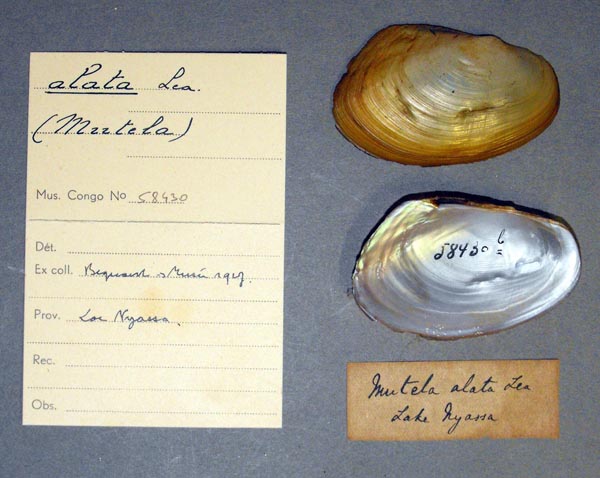 alata Lea.
(Mutela)
Mus. Congo No 58430
Dét.
Ex coll. 1927.
Prov. Lac Nyassa.
Rec.
Obs.
58430 b
Mutela alata Lea
Lake Nyassa